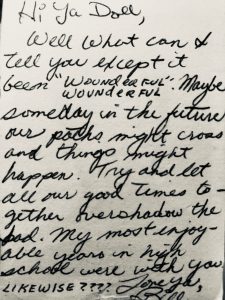 Hi Ya Doll,
Well what can I
tell you except it
been "WOUNDERFUL". Maybe
WOUNDERFUL
someday in the future
our paths might cross
and things might
happen. Try and let
all our good times to-
gether overshadow the
bad. My most enjoy-
able years in high
school were with you
LIKEWISE???? Love Ya,